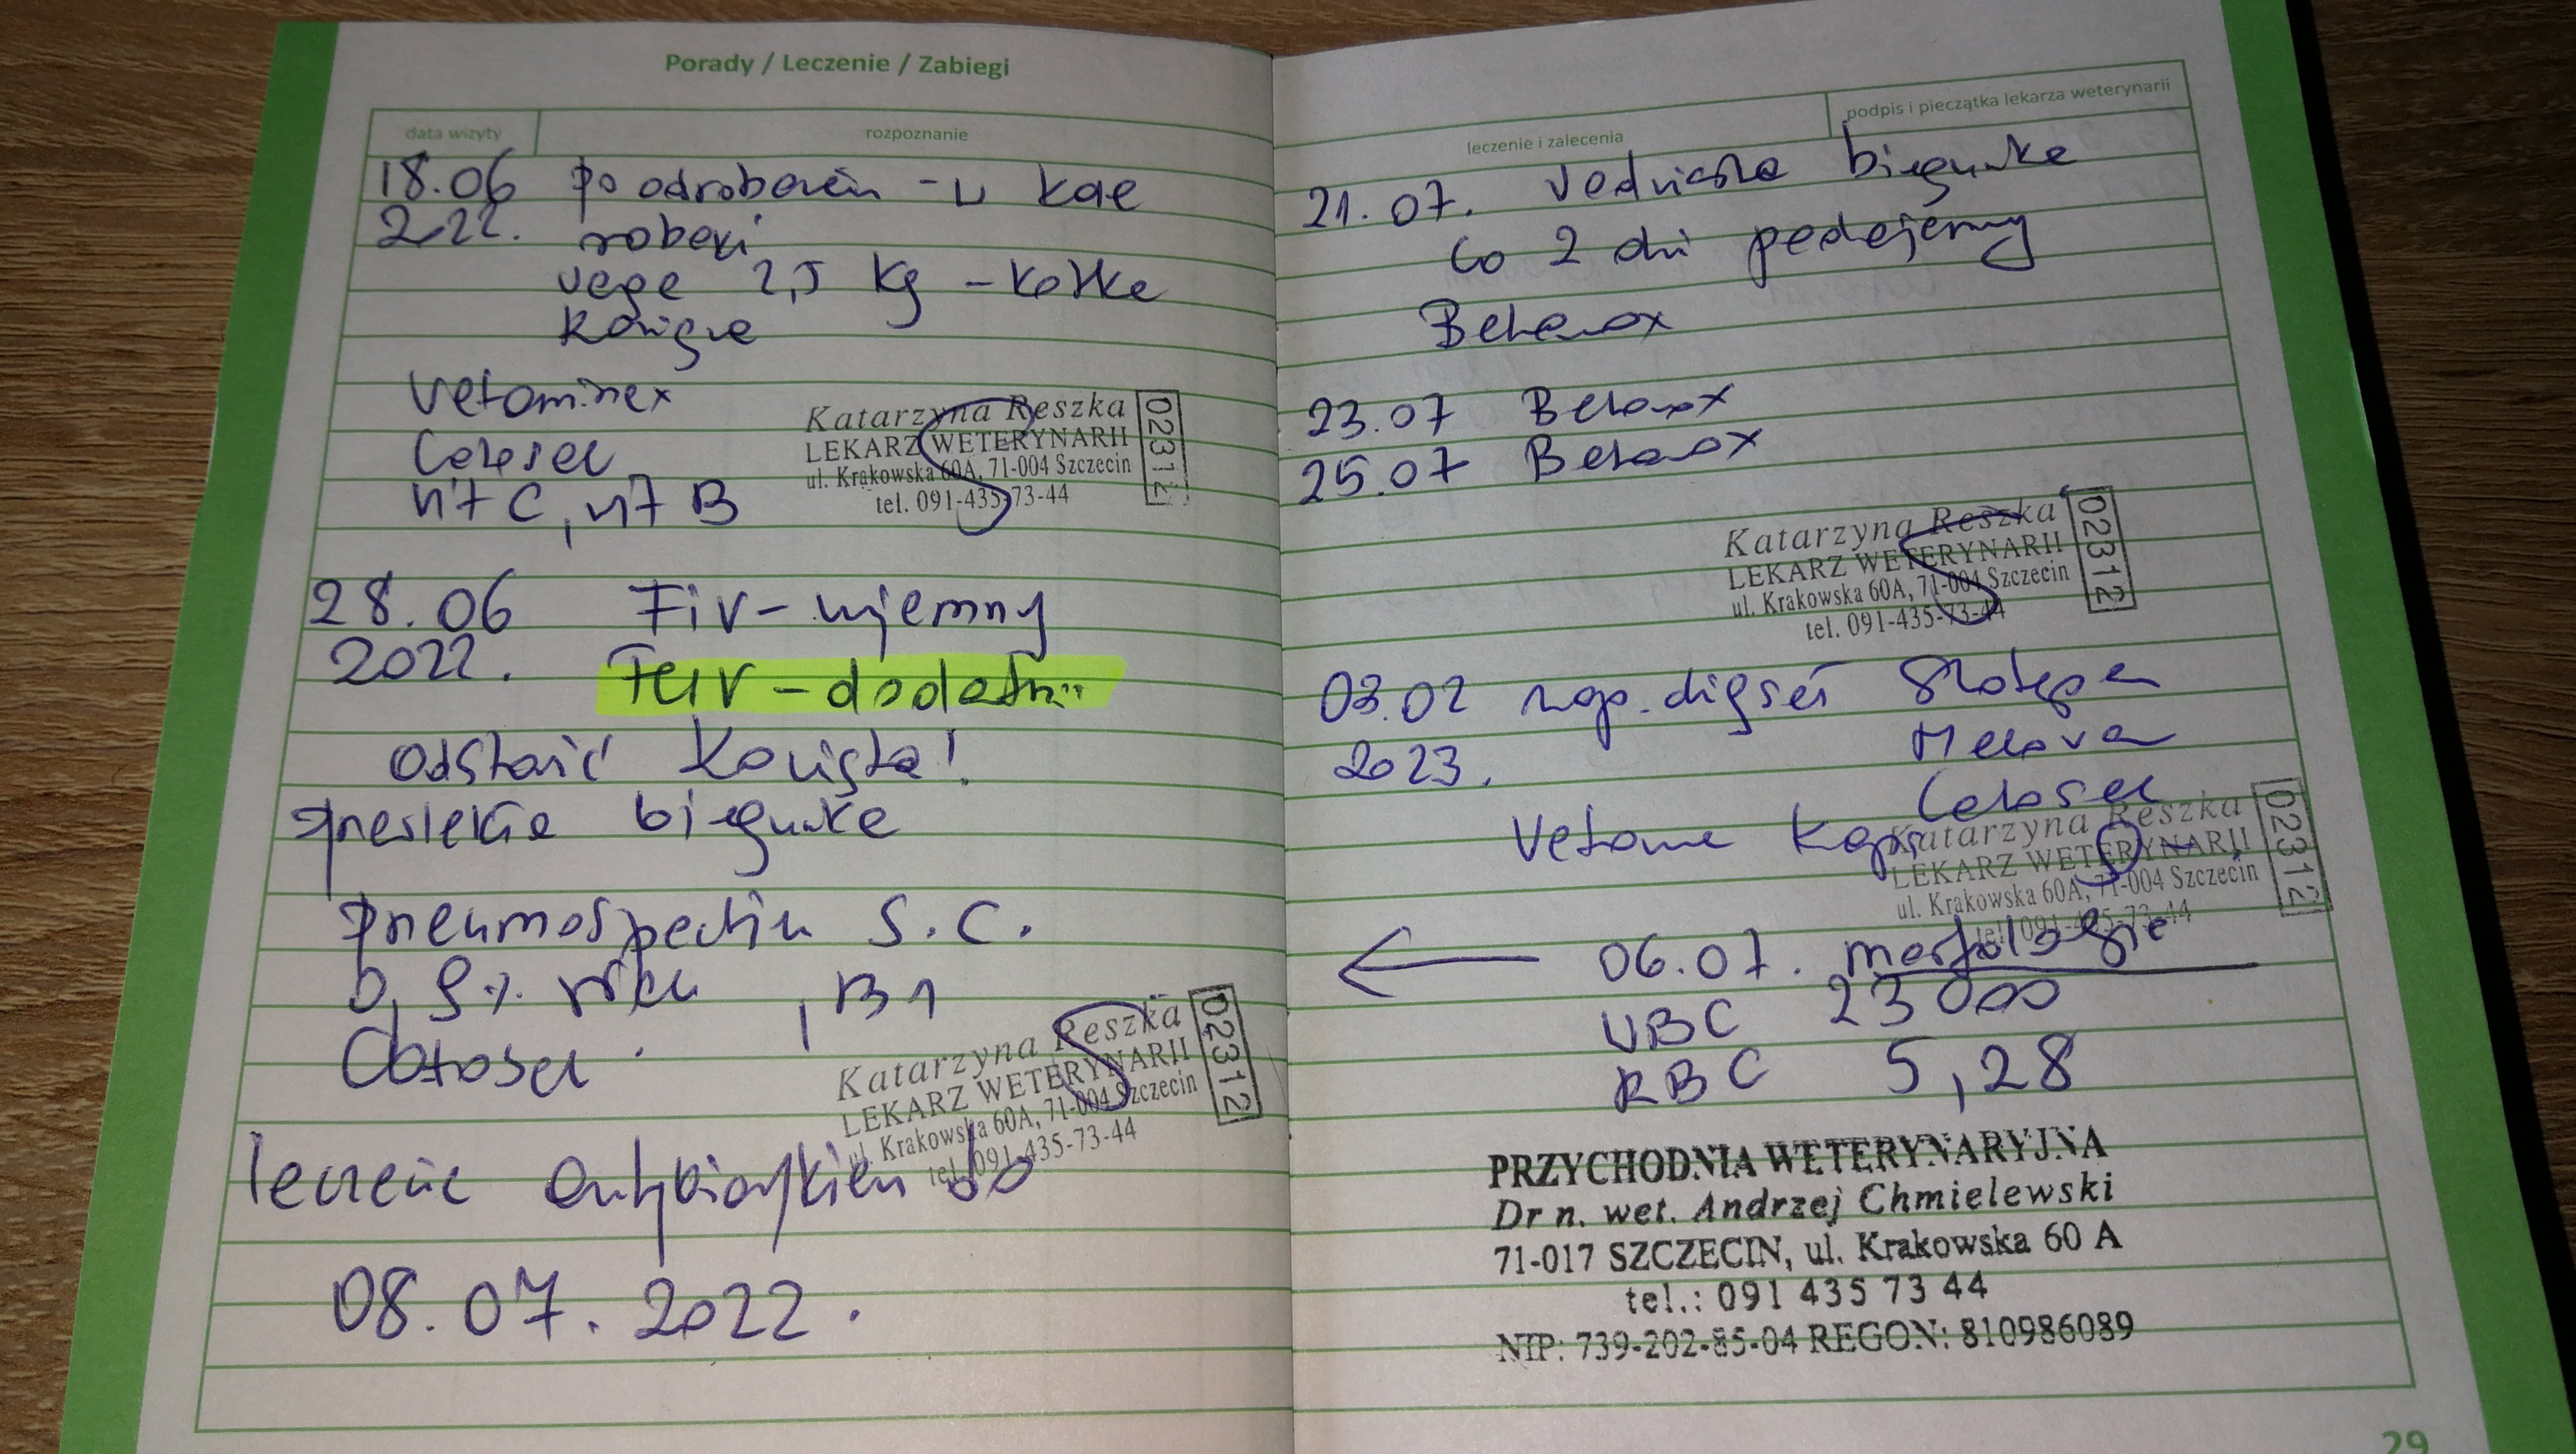 Porady / Leczenie / Zabiegi
data wizyty
rozpoznanie
18.06 po odrobaczeniu - w kale
2022. robaki
waga 2,5 kg - kotka
karmiąca
Vetaminex
Catosal
wit C, wit B
Katarzyna Reszka
LEKARZ WETERYNARII
ul. Krakowska 60A, 71-004 Szczecin
tel. 091-435-73-44
02312
28.06 Fiv - ujemny
2022. Felv - dodatni
odstawić kocięta!
biegunka
Pneumospectin s.c.
0,9% , B1
Catosal
Katarzyna Reszka
LEKARZ WETERYNARII
ul. Krakowska 60A, 71-004 Szczecin
tel. 091-435-73-44
02312
leczenie antybiotykiem do
08.07.2022.
leczenie i zalecenia
podpis i pieczątka lekarza weterynarii
21.07. biegunka
co 2 dni podajemy
Betamox
23.07 Betamox
25.07 Betamox
Katarzyna Reszka
LEKARZ WETERYNARII
ul. Krakowska 60A, 71-004 Szczecin
tel. 091-435-73-44
02312
03.02 zap. dziąseł
2023.
Catosal
Katarzyna Reszka
LEKARZ WETERYNARII
ul. Krakowska 60A, 71-004 Szczecin
tel. 091-435-73-44
02312
06.07. morfologia
WBC 23000
RBC 5,28
PRZYCHODNIA WETERYNARYJNA
Dr n. wet. Andrzej Chmielewski
71-017 SZCZECIN, ul. Krakowska 60 A
tel.: 091 435 73 44
NIP: 739-202-85-04 REGON: 810986089
29